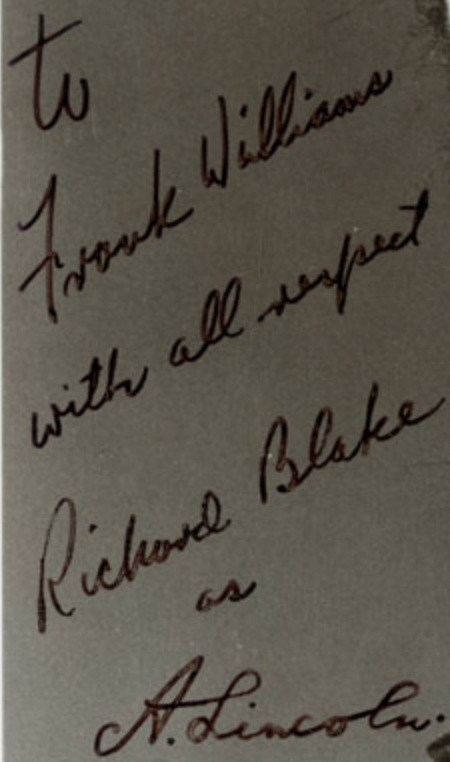 to
Frank Williams
with all respect
Richard Blake
as
A. Lincoln.